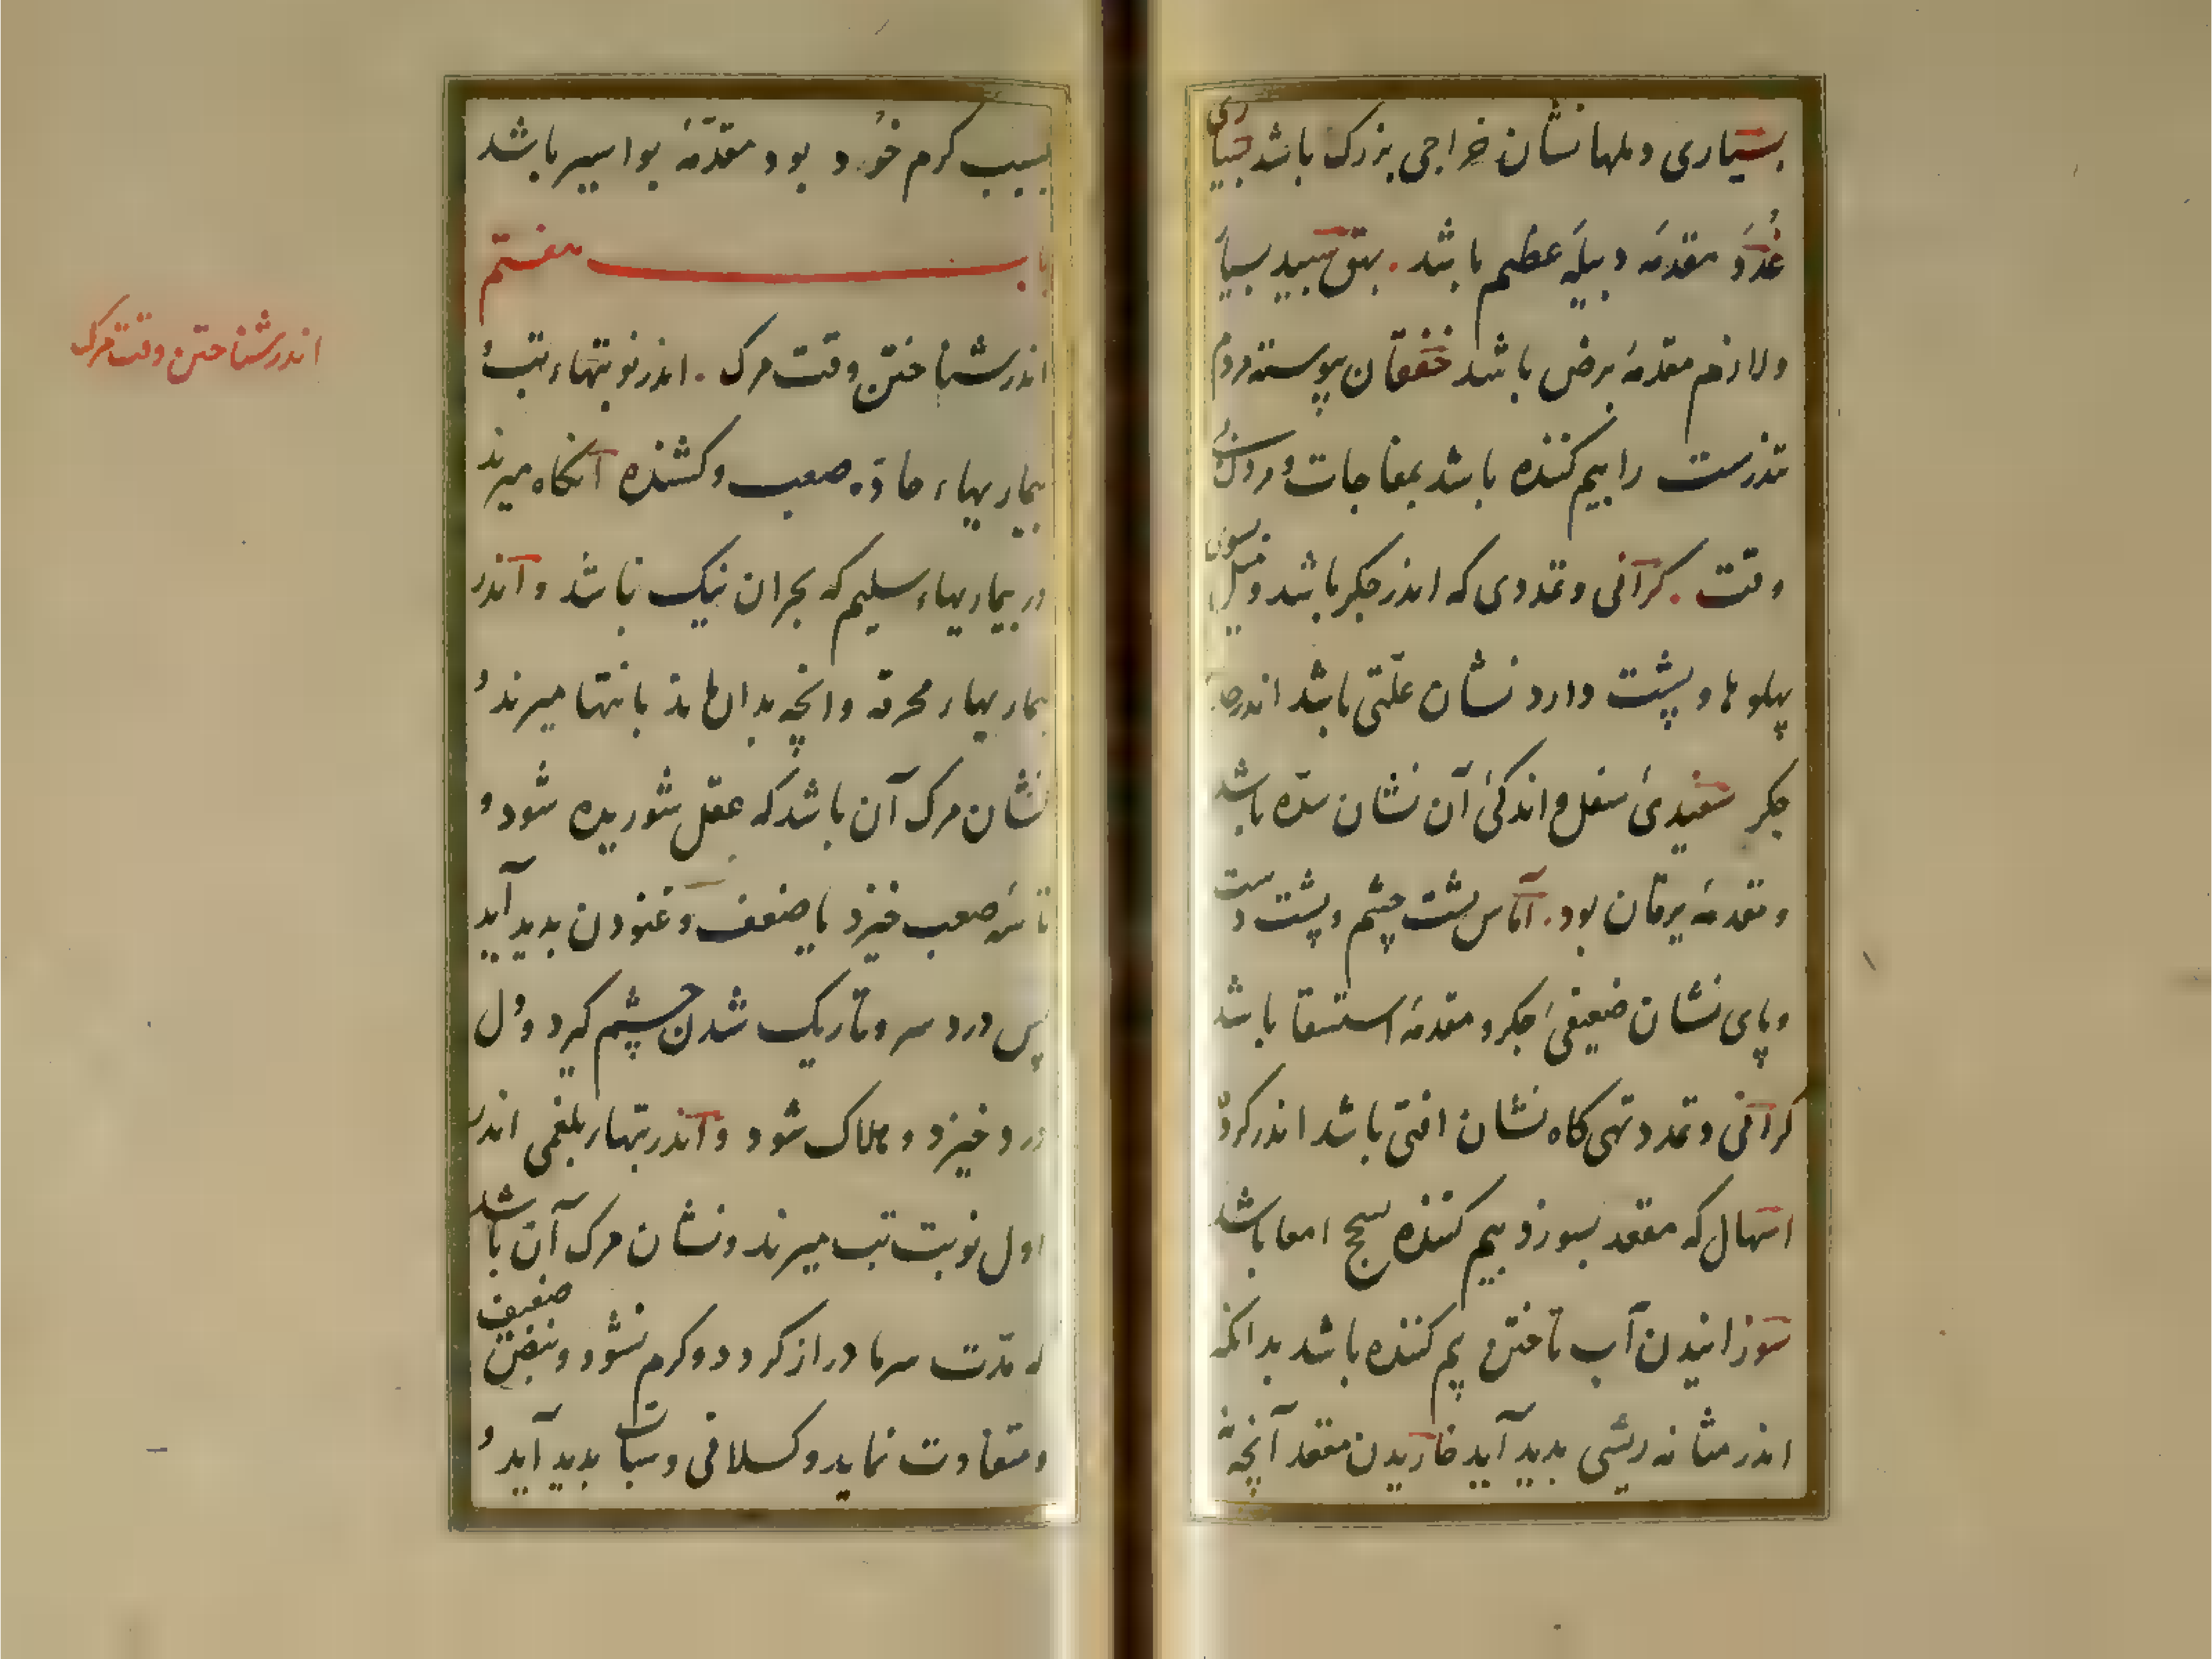 بسیاری دملها نشان خراجی بزرک باشد بسیاری
غُدَد مقدمهٔ دبیلهٔ عظیم باشد . بهق سپید بسیا
ولازم مقدمهٔ برص باشد خفقان پیوسته مردم
تندرست را بیم کننده باشد بمفاجات و مردن
وقت . کرانی وتمددی که اندر جکر باشد ومیل سوی
پهلوها و پشت دارد نشان علّتی باشد اندر
جکر سفیدیٔ سفل و اندکیٔ آن نشان سدّه باشد
ومقدمهٔ یرقان بود . آماس پشت چشم وپشت دست
وپای نشان ضعیفیٔ جکر و مقدمهٔ استسقا باشد
کرانی وتمدد تهی کاه نشان افتی باشد اندر کرده
اسهال که مقعد بسوزد بیم کننده سحج امعا باشد
سوزانیدن آب تاختن بیم کننده باشد بدانکه
اندر مثانه ریشی بدید آید خاریدن مقعد آنچه نه
بسبب کرم خُورد بود مقدّمهٔ بواسیر باشد
باب هفتم
اندر شناختن وقت مرک . اندر نوبتهاء تب و
اندر شناختن وقت مرک
بیماریهاء حادّه صعب وکشنده آنکاه میرند
در بیماریهاء سلیم که بحران نیک نباشد و اندر
بیماریهاء محرقه وانچه بدان ماند بانتها میرند و
نشان مرک آن باشد که عقل شوریده شود و
تاسهٔ صعب خیزد یا ضعف وغنودن بدید آید
پس درد سر وتاریک شدن چشم کیرد و دل
درد خیزد و هلاک شود و اندر تبهاء بلغمی اندر
اول نوبت تب میرند ونشان مرک آن باشد
که مدّت سرما دراز کردد وکرم نشود ونبض ضعیف
ومتفاوت نماید وکسلانی وسبات بدید آید و